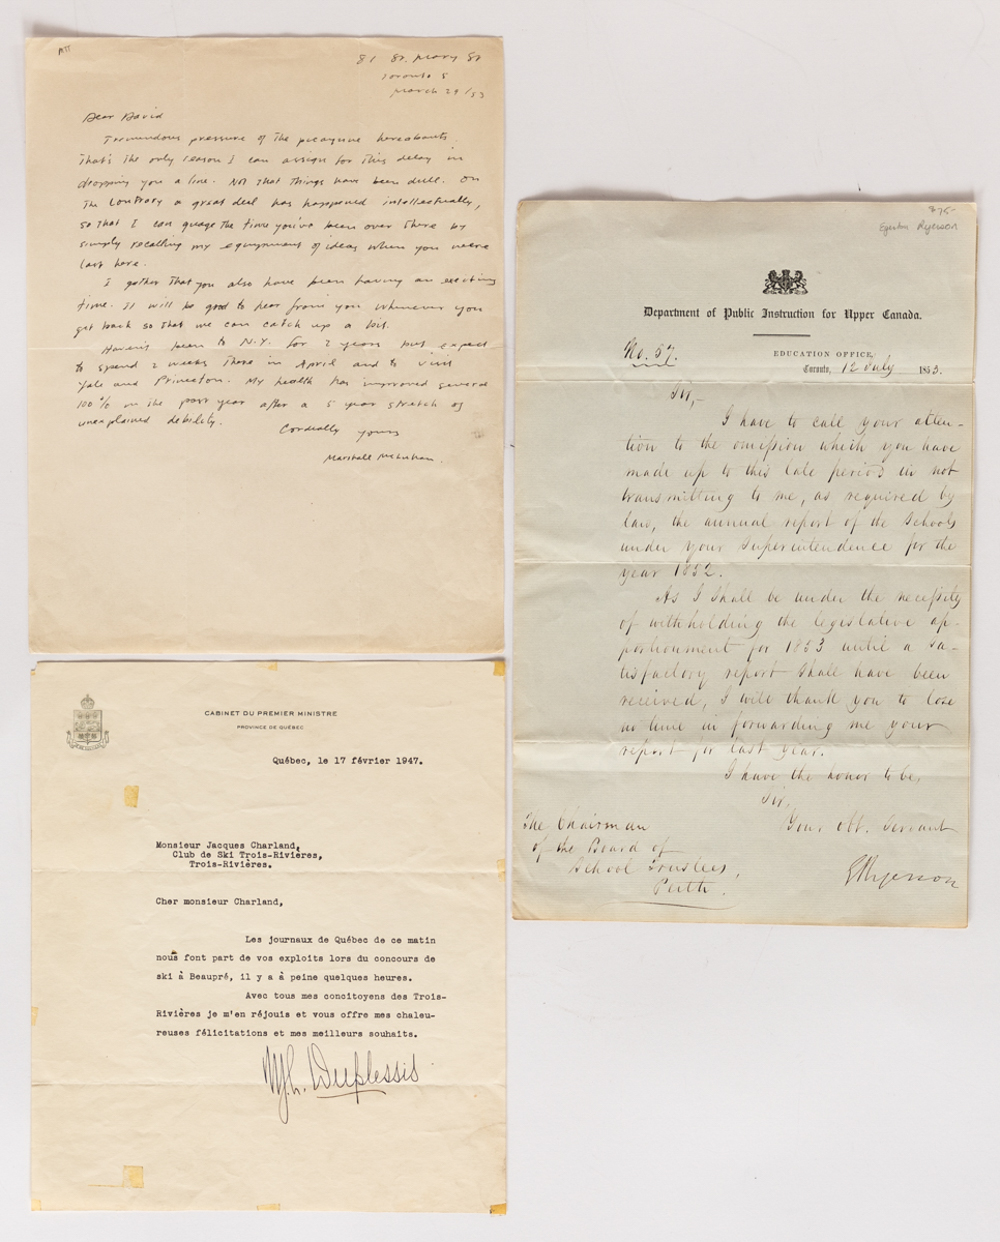 81 St. Mary St
Toronto 5
March 29/53
Dear David
Tremendous pressure of the picayune hereabouts.
That's the only reason I can assign for this delay in
dropping you a line. Not that things have been dull. On
the contrary a great deal has happened intellectually,
so that I can guage the time you've been over there by
simply recalling my equipment of ideas when you were
last here.
I gather that you also have been having an exciting
time. It will be good to hear from you whenever you
get back so that we can catch up a bit.
Haven't been to N.Y. for 2 years but expect
to spend 2 weeks there in April and to visit
Yale and Princeton. My health has improved several
100% in the past year after a 5 year stretch of
unexplained debility.
Cordially yours
Marshall McLuhan.
CABINET DU PREMIER MINISTRE
PROVINCE DE QUÉBEC
Québec, le 17 février 1947.
Monsieur Jacques Charland,
Club de Ski Trois-Rivières,
Trois-Rivières.
Cher monsieur Charland,
Les journaux de Québec de ce matin
nous font part de vos exploits lors du concours de
ski à Beaupré, il y a à peine quelques heures.
Avec tous mes concitoyens des Trois-
Rivières je m'en réjouis et vous offre mes chaleu-
reuses félicitations et mes meilleurs souhaits.
M. L. Duplessis
875-
Egerton Ryerson
Department of Public Instruction for Upper Canada.
No. 57.
EDUCATION OFFICE,
Toronto, 12 July 1853.
Sir,-
I have to call your atten-
tion to the omission which you have
made up to this late period in not
transmitting to me, as required by
law, the annual report of the Schools
under your Superintendence for the
year 1852.
As I shall be under the necessity
of withholding the legislative ap-
portionment for 1853 until a sa-
tisfactory report shall have been
received, I will thank you to lose
no time in forwarding me your
report for last year.
I have the honor to be,
Sir,
Your obt. Servant
ERyerson
The Chairman
of the Board of
School Trustees,
Perth.